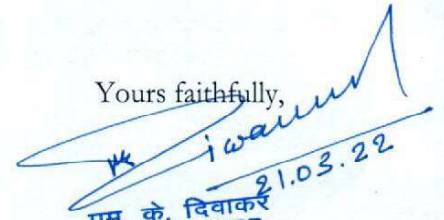 Yours faithfully,
21.03.22
एम. के. दिवाकर